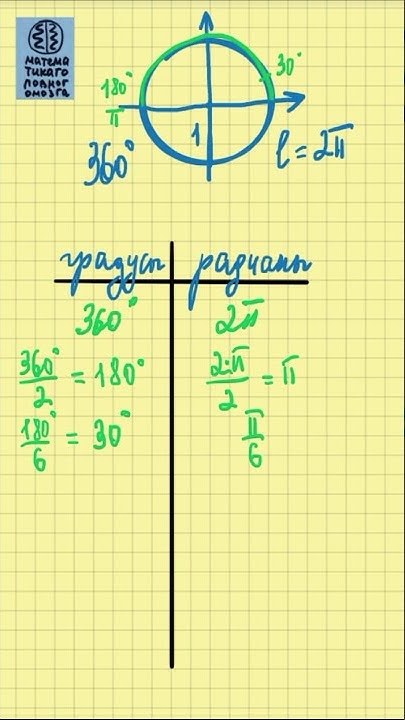 матема
тикаго
ловног
омозга
30°
180°
π
1
360°
l = 2π
градусы радианы
360° 2π
360°/2 = 180° 2·π/2 = π
180°/6 = 30° π/6